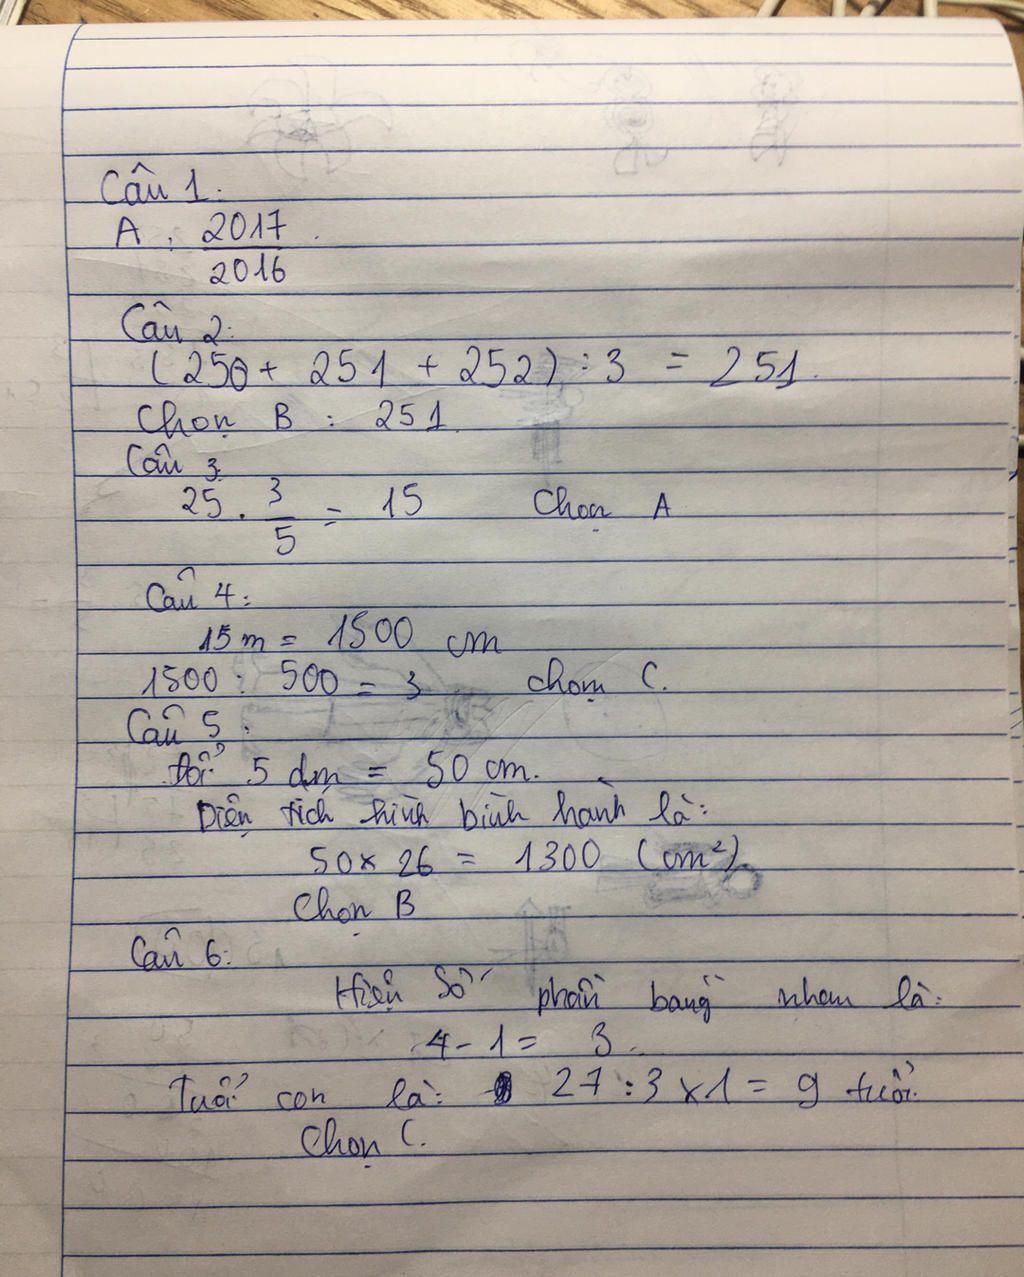 Câu 1:
A. 2017/2016.
Câu 2:
(250 + 251 + 252) : 3 = 251.
Chọn B : 251.
Câu 3.
25 . 3/5 = 15 Chọn A
Câu 4:
15 m = 1500 cm
1500 : 500 = 3 chọn C.
Câu 5:
đổi 5 dm = 50 cm.
Diện tích hình bình hành là:
50 x 26 = 1300 (cm²)
Chọn B
Câu 6:
Hiệu số phần bằng nhau là:
4 - 1 = 3.
Tuổi con là: 27 : 3 x 1 = 9 tuổi.
Chọn C.